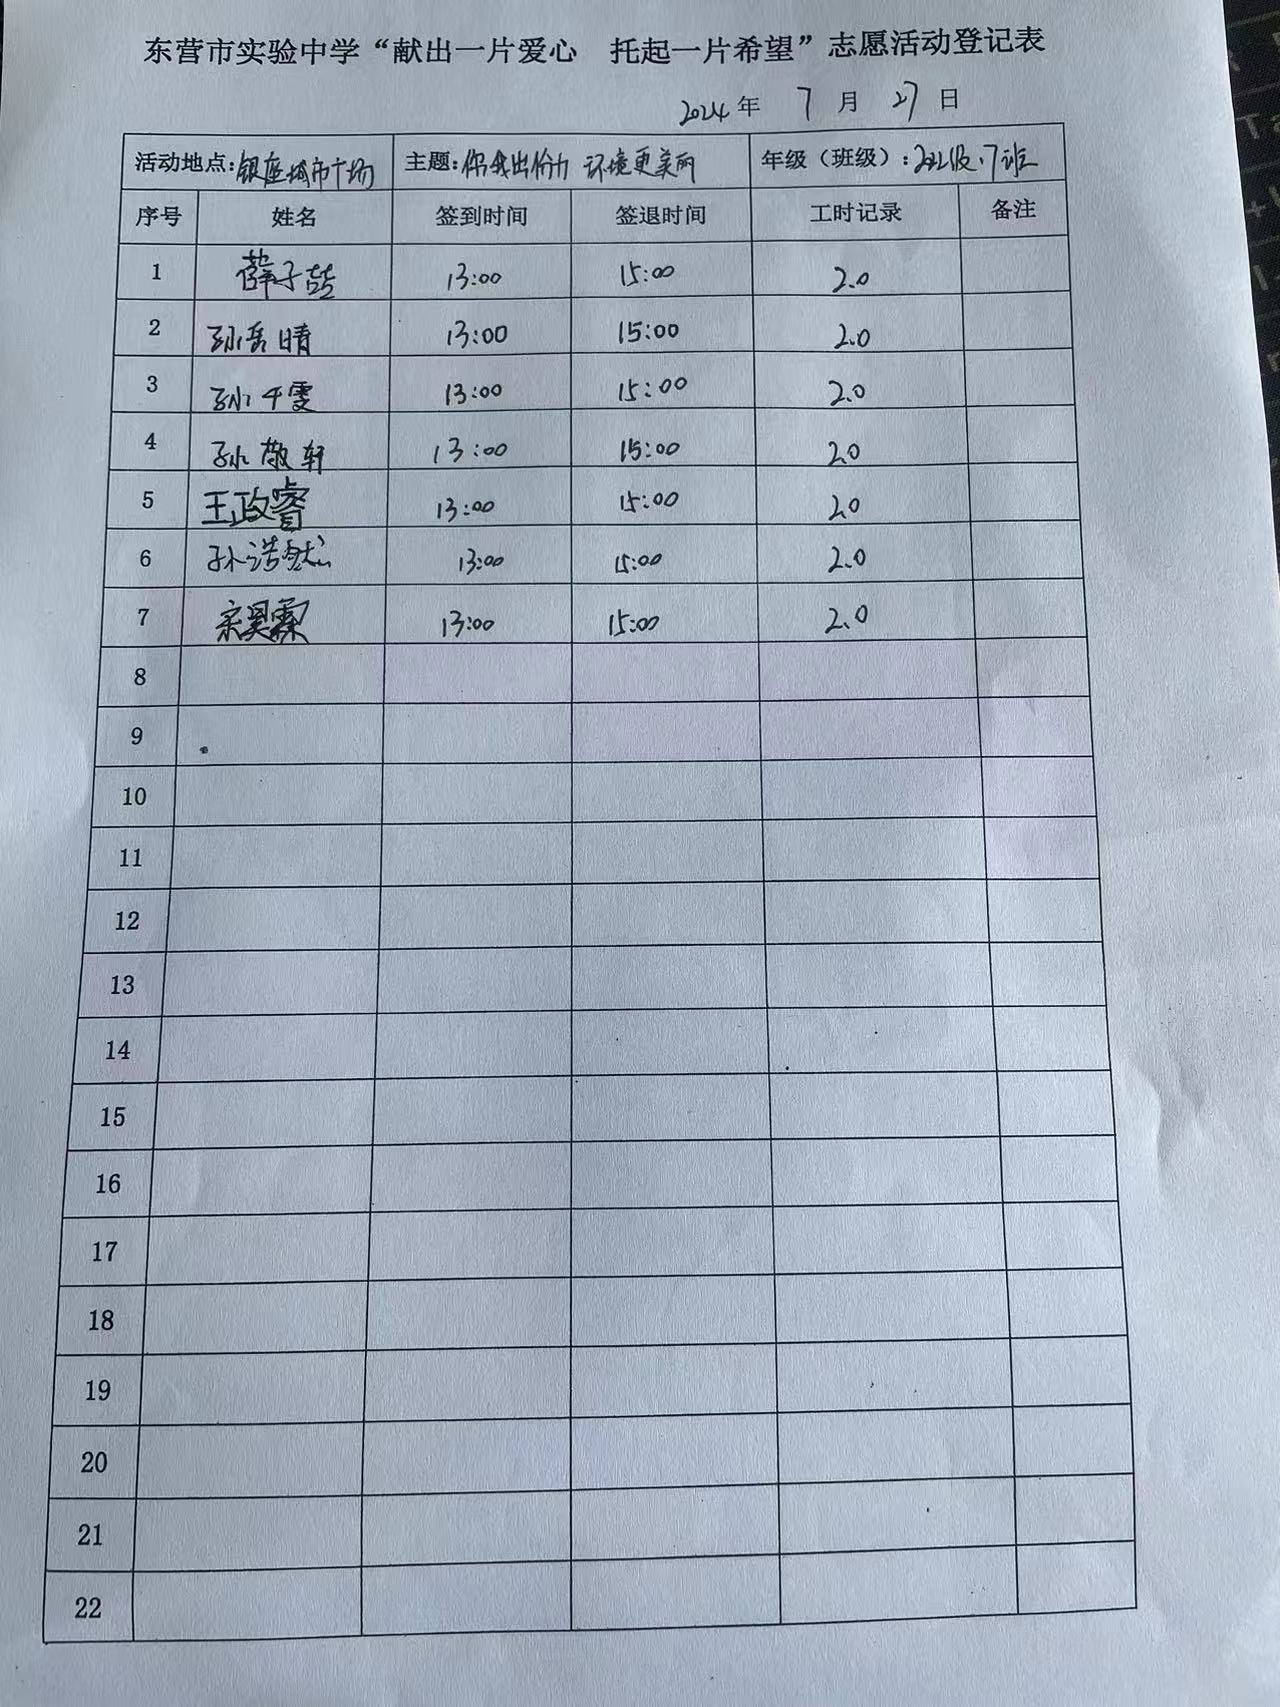 东营市实验中学“献出一片爱心 托起一片希望”志愿活动登记表
2024年 7月 27日
活动地点:银座城市广场 主题:你我出份力 环境更美丽 年级（班级）:2022级.17班
序号 姓名 签到时间 签退时间 工时记录 备注
1 薛子喆 13:00 15:00 2.0
2 孙岳晴 13:00 15:00 2.0
3 孙千雯 13:00 15:00 2.0
4 孙敬轩 13:00 15:00 2.0
5 王政睿 13:00 15:00 2.0
6 孙浩然 13:00 15:00 2.0
7 宋昊霖 13:00 15:00 2.0
8
9
10
11
12
13
14
15
16
17
18
19
20
21
22